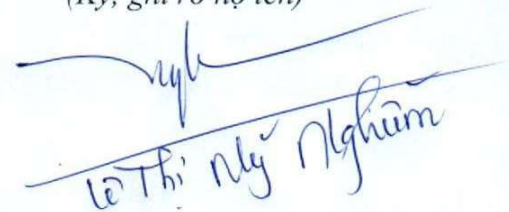 (Ký, ghi rõ họ tên)
Lê Thị Mỹ Nghiêm